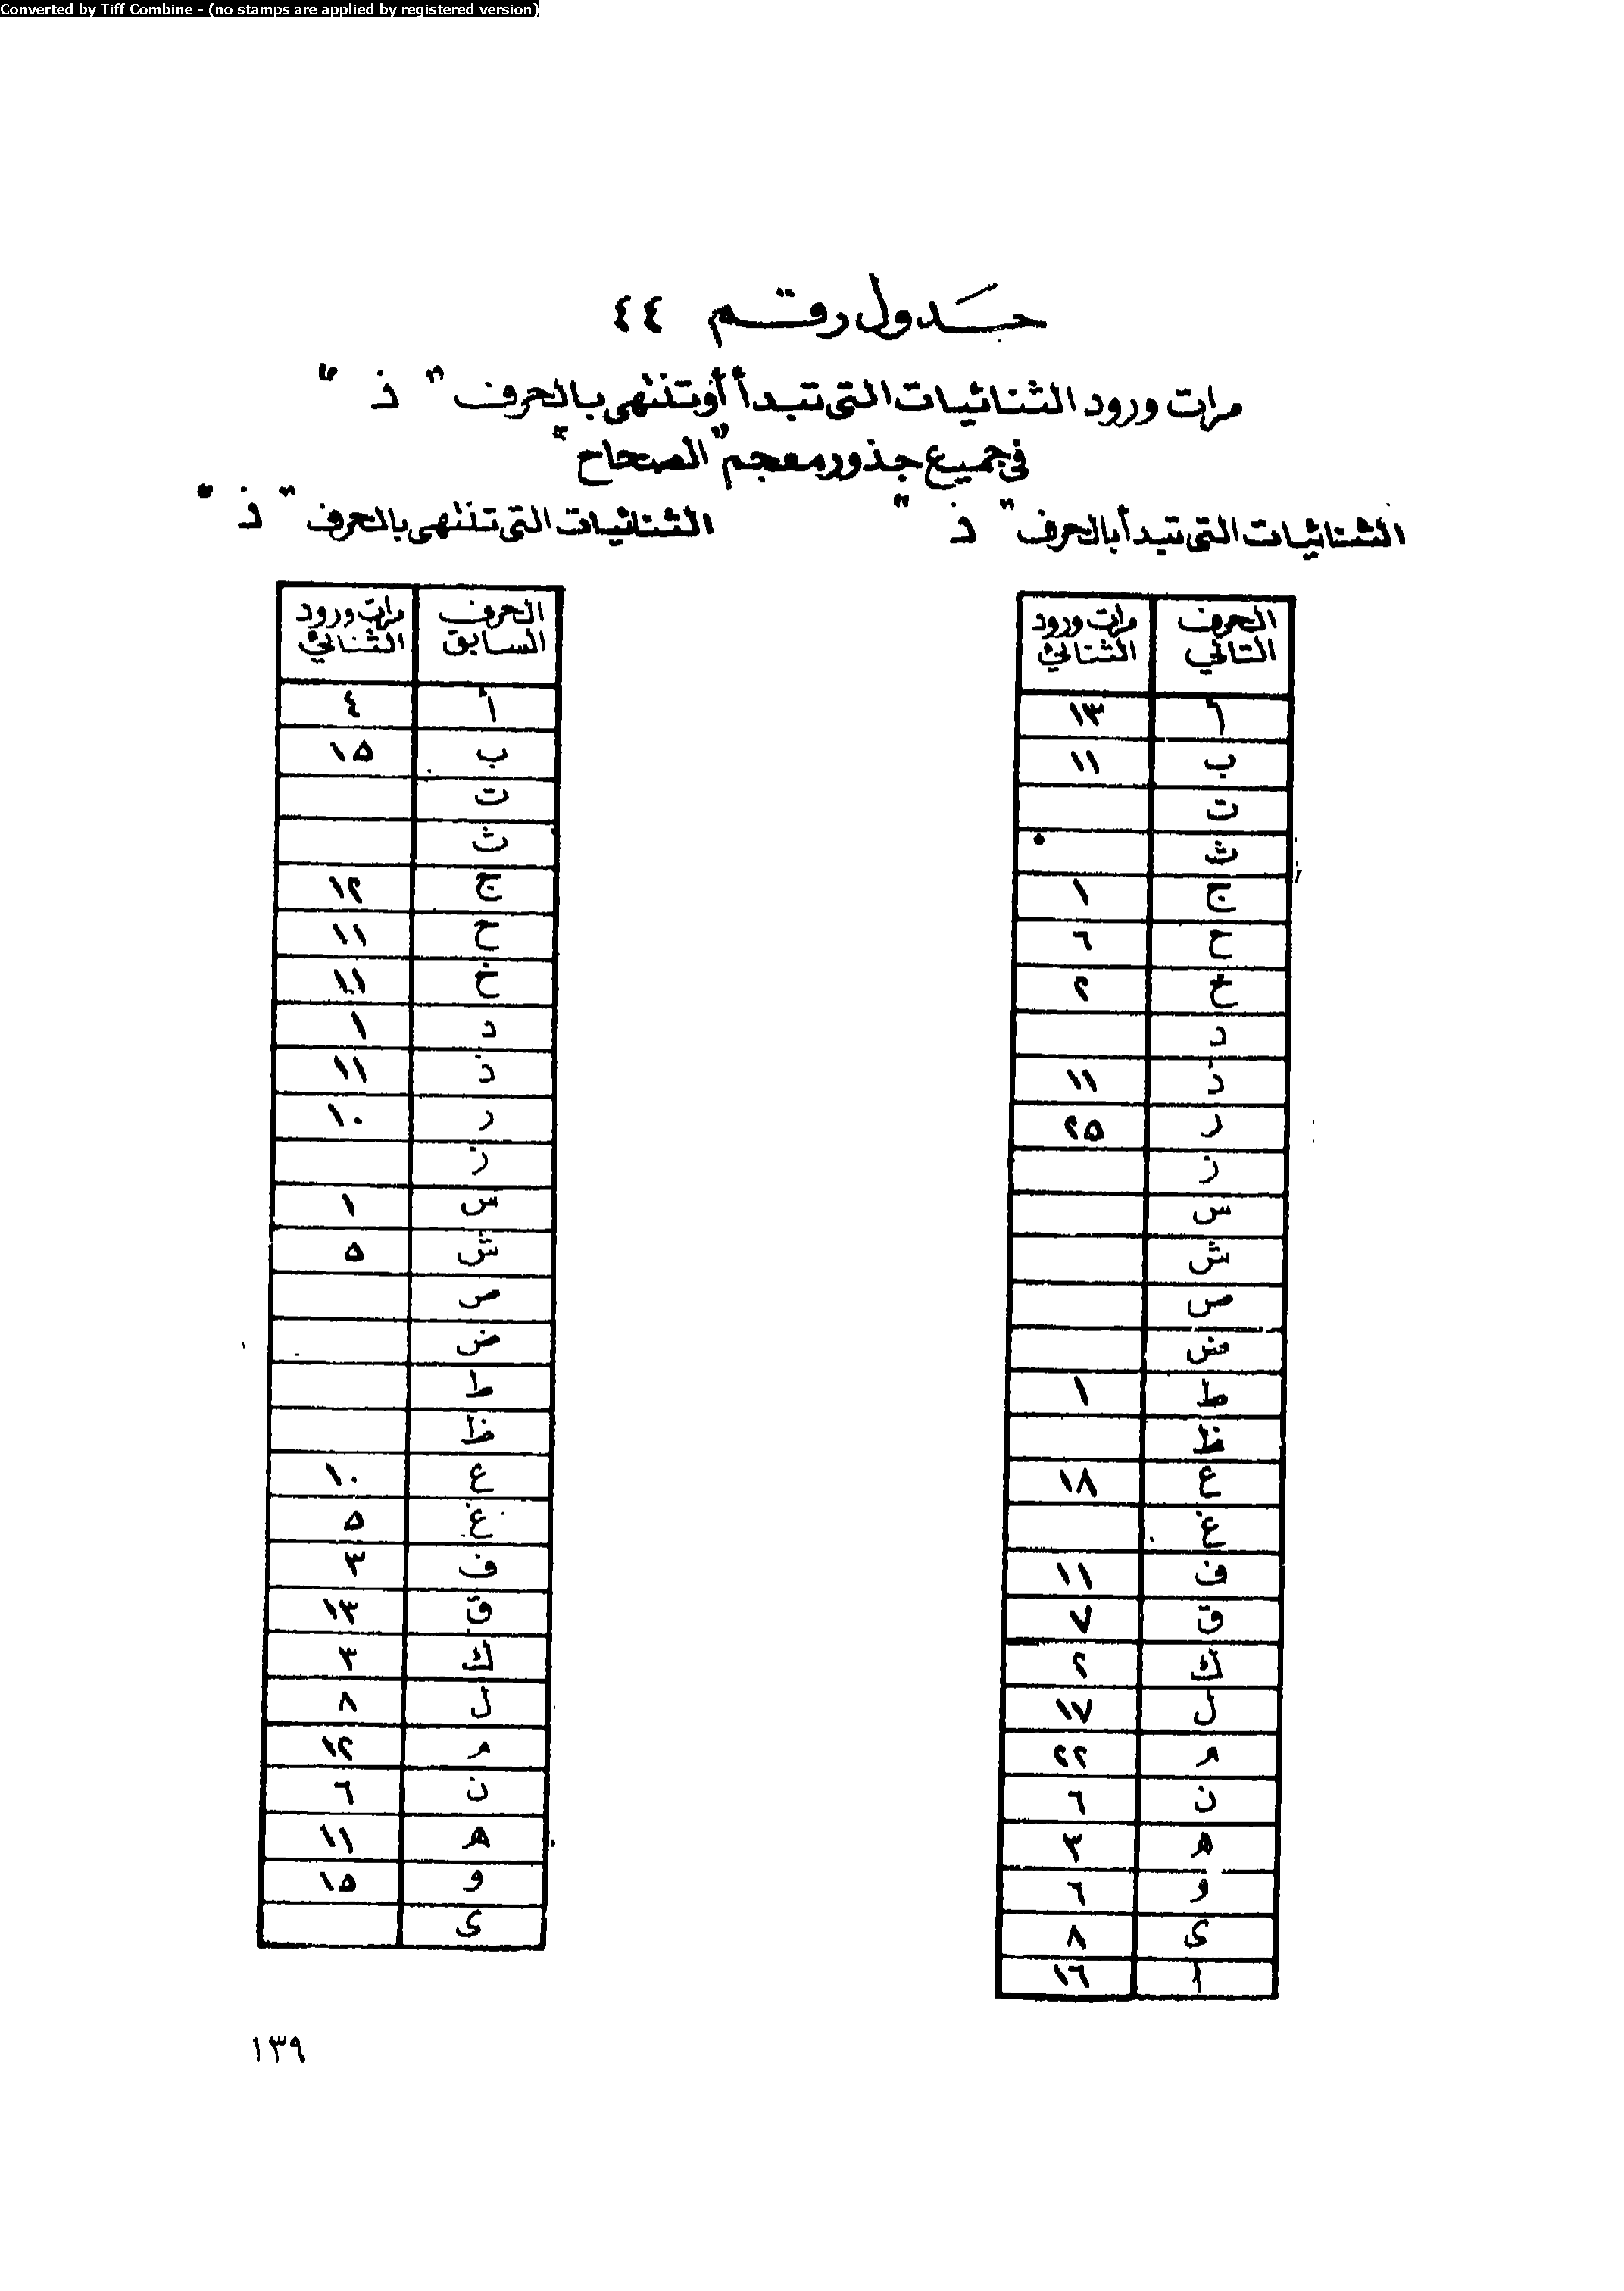 Converted by Tiff Combine - (no stamps are applied by registered version)
جَدول رقم ٤٤
مرات ورود الثنائيات التى تبدأ أو تنتهى بالحرف " ذ "
فى جميع جذور معجم "الصحاح"
الثنائيات التى تبدأ بالحرف " ذ "
الحرف التالي مرات ورود الثنائي
أ ١٣
ب ١١
ت
ث
ج ١
ح ٦
خ ٢
د
ذ ١١
ر ٢٥
ز
س
ش
ص
ض
ط ١
ظ
ع ١٨
غ
ف ١١
ق ٧
ك ٢
ل ١٧
م ٢٢
ن ٦
ه ٣
و ٦
ى ٨
ا ١٦
الثنائيات التى تنتهى بالحرف " ذ "
الحرف السابق مرات ورود الثنائي
أ ٤
ب ١٥
ت
ث
ج ١٢
ح ١١
خ ١١
د ١
ذ ١١
ر ١٠
ز
س ١
ش ٥
ص
ض
ط
ظ
ع ١٠
غ ٥
ف ٣
ق ١٣
ك ٣
ل ٨
م ١٢
ن ٦
ه ١١
و ١٥
ى
١٣٩